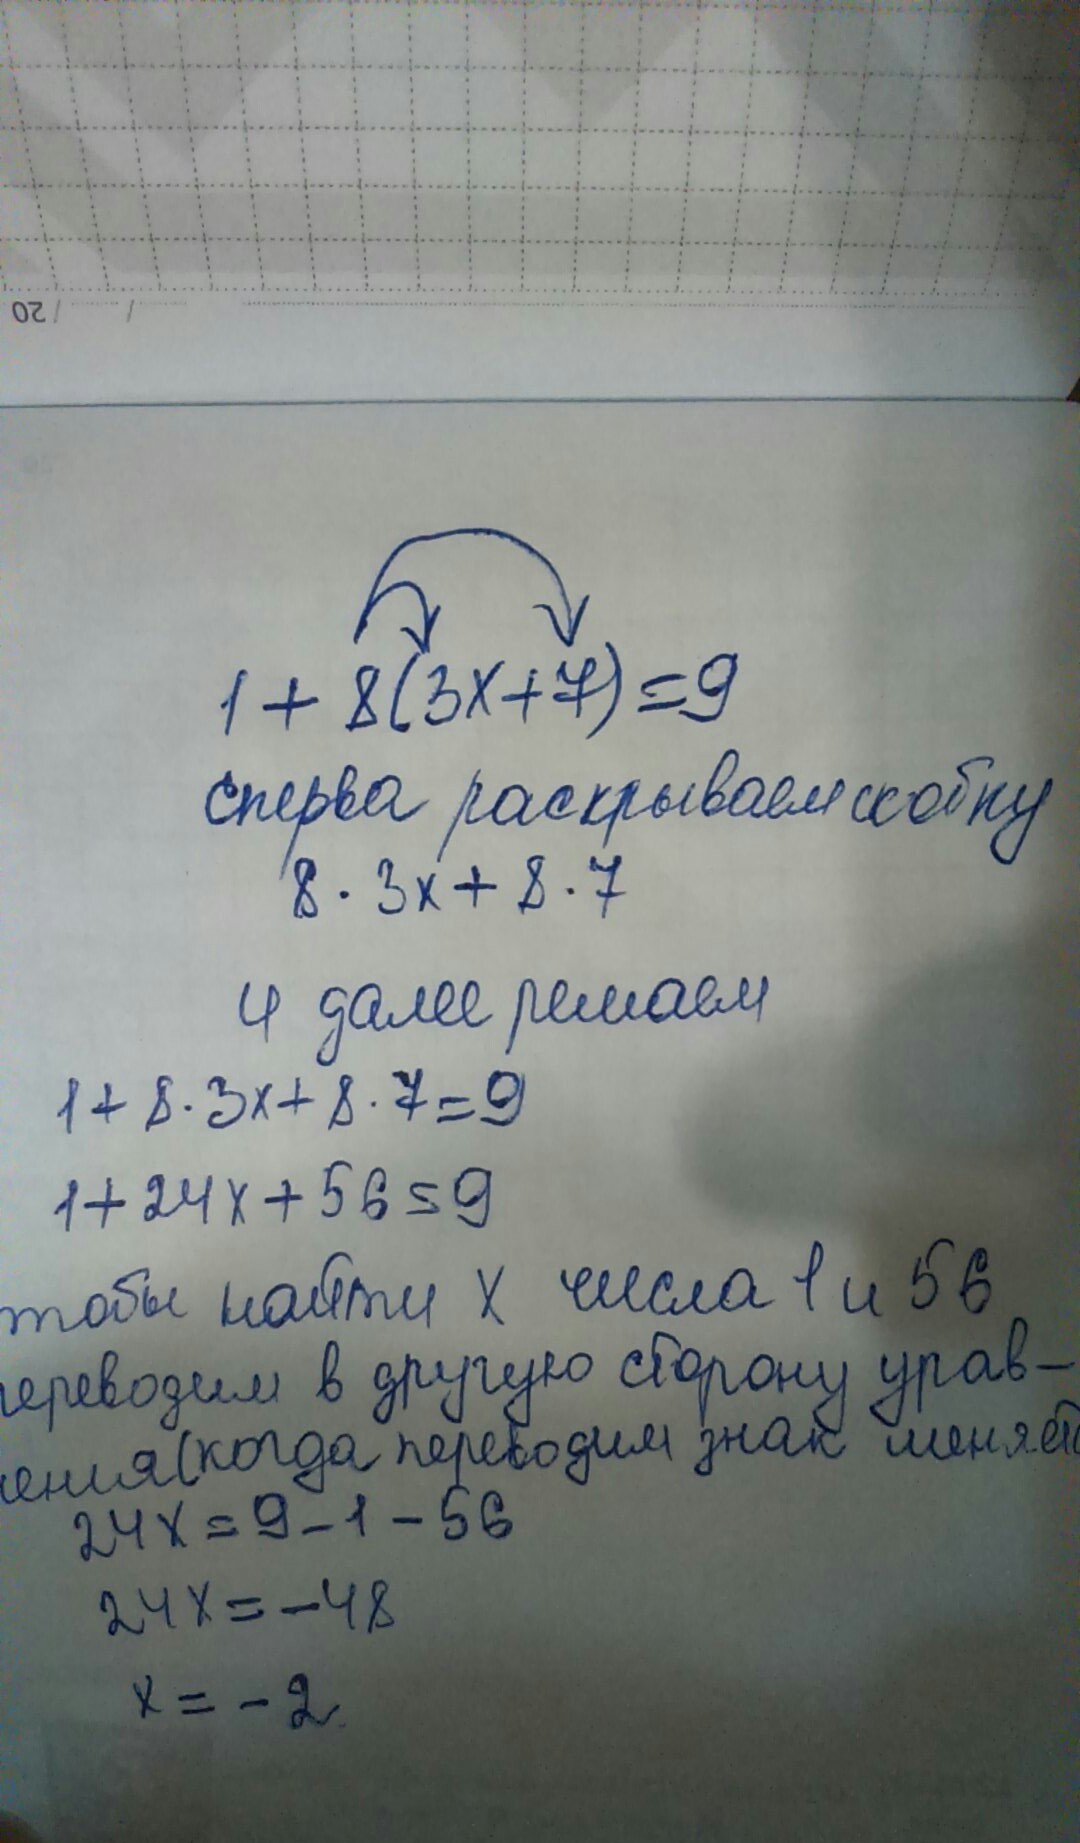 / / 20
1 + 8(3x+7)=9
сперва раскрываем скобку
8 · 3x + 8 · 7
и далее решаем
1 + 8 · 3x + 8 · 7 = 9
1 + 24x + 56 = 9
тобы найти x числа 1 и 56
переводим в другую сторону урав-
ения(когда переводим знак меняетс
24x = 9 - 1 - 56
24x = -48
x = -2